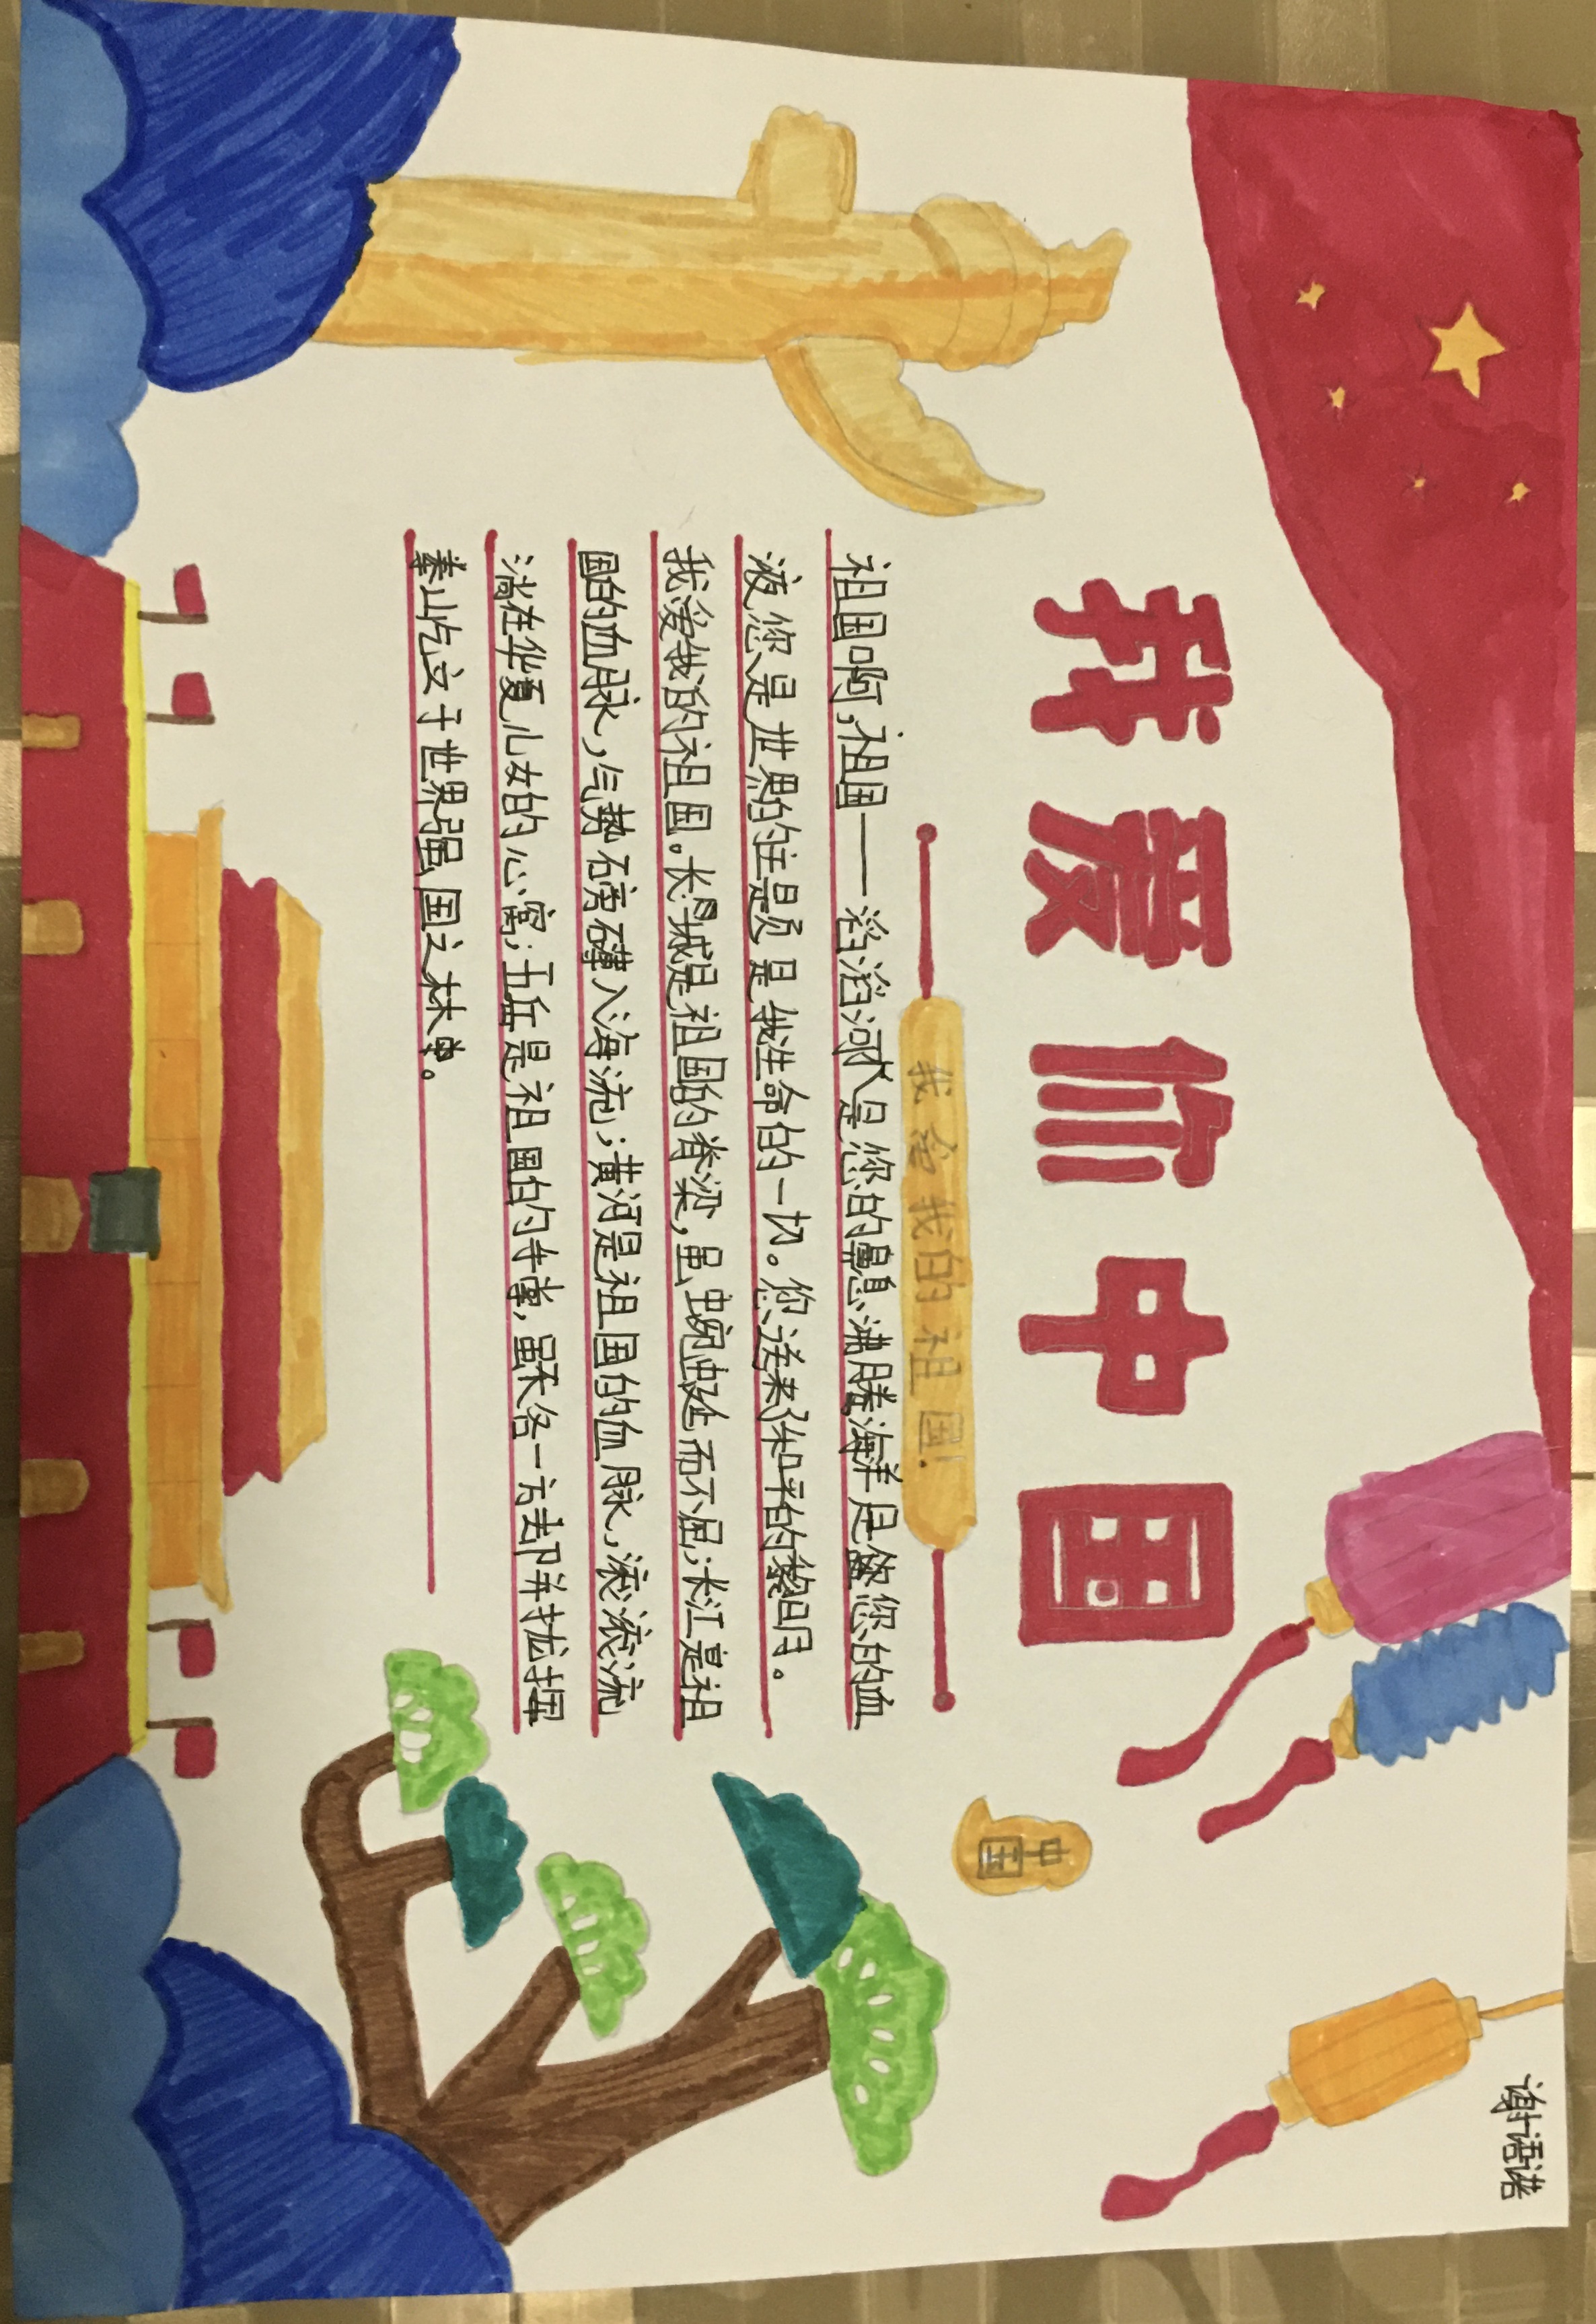 谢语诺
我爱你中国
中国
我爱我的祖国!
祖国啊,祖国——滔滔河水是您的鼻息沸腾海洋是您的血
液,您是世界的主是员是我生命的一切。您送来和平的黎明。
我爱我的祖国。长城是祖国的脊梁,虽蜿蜒而不屈;长江是祖
国的血脉,气势磅礴入海流;黄河是祖国的血脉,滚滚流
淌在华夏儿女的心窝;五岳是祖国的手掌,虽不各一方却并拢挥
拳屹立于世界强国之林。